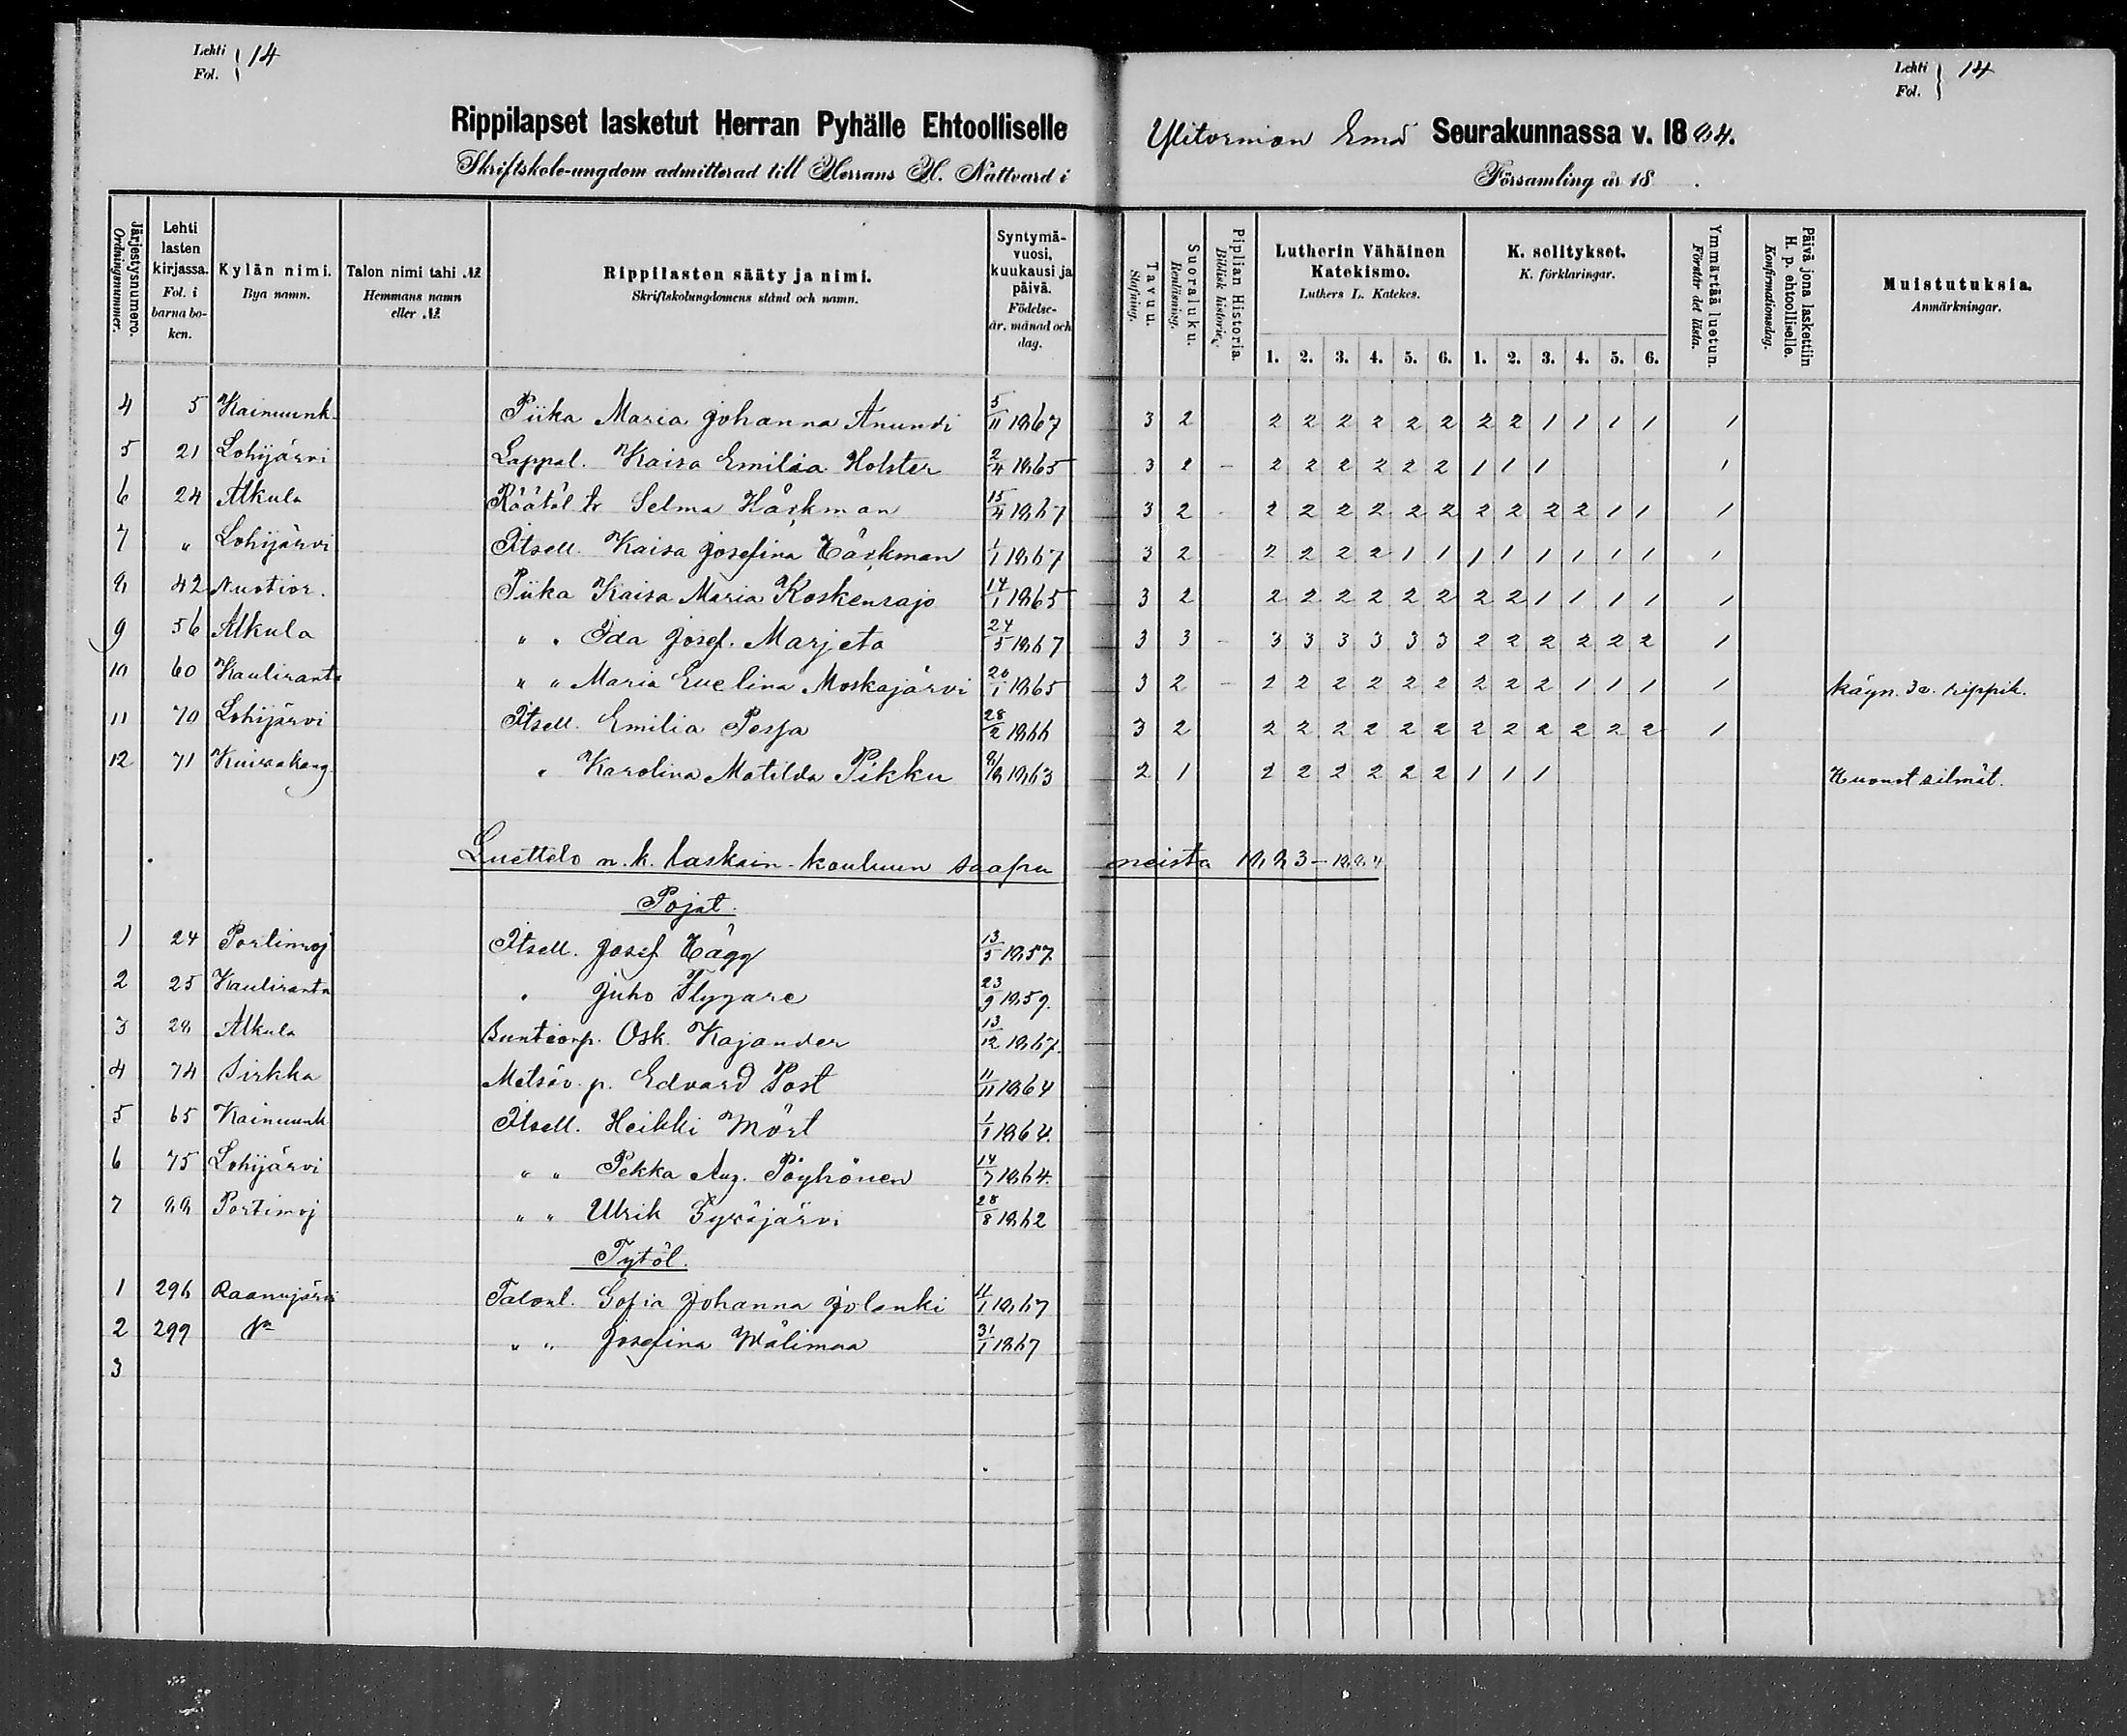 Lehti
Fol. } 14
Lehti
Fol. } 14
Rippilapset lasketut Herran Pyhälle Ehtoolliselle Ylitornion Emä Seurakunnassa v. 1884.
Skriftskole-ungdom admitterad till Herrans H. Nattvard i Församling år 18 .
Järjestysnumero. Ordningsnummer.
Lehti lasten kirjassa. Fol. i barna boken.
Kylän nimi. Bya namn.
Talon nimi tahi № Hemmans namn eller №
Rippilasten sääty ja nimi. Skriftskolungdomens stånd och namn.
Syntymävuosi, kuukausi ja päivä. Födelseår, månad och dag.
Tavuu. Stafning.
Suoraluku. Renläsning.
Piplian Historia. Biblisk historie.
Lutherin Vähäinen Katekismo. Luthers L. Katekes.
K. selitykset. K. förklaringar.
Ymmärtää luetun. Förstår det lästa.
Päivä jona laskettiin H. p. ehtoolliselle. Konfirmationsdag.
Muistutuksia. Anmärkningar.
1. 2. 3. 4. 5. 6. 1. 2. 3. 4. 5. 6.
4 5 Kainuunk. Piika Maria Johanna Anundi 5/11 1867 3 2 2 2 2 2 2 2 2 2 1 1 1 1 1
5 21 Lohijärvi Lappal. Kaisa Emilia Holster 2/4 1865 3 2 - 2 2 2 2 2 2 1 1 1 1
6 24 Alkula Räätöl tr Selma Häckman 15/4 1867 3 2 - 2 2 2 2 2 2 2 2 2 2 1 1 1
7 " Lohijärvi Itsell. Kaisa Josefina Häckman 1/1 1867 3 2 2 2 2 2 1 1 1 1 1 1 1 1 1
8 42 Nuotior. Piika Kaisa Maria Koskenrajo 14/1 1865 3 2 2 2 2 2 2 2 2 2 1 1 1 1 1
9 56 Alkula " " Ida Josef. Marjeta 24/5 1867 3 3 - 3 3 3 3 3 3 2 2 2 2 2 2 1
10 60 Kauliranta " " Maria Evelina Moskajärvi 20/1 1865 3 2 - 2 2 2 2 2 2 2 2 2 1 1 1 1 käyn. 3 v. rippik.
11 70 Lohijärvi Itsell. Emilia Pespa 28/2 1866 3 2 2 2 2 2 2 2 2 2 2 2 2 2 1
12 71 Kuivakang " Karolina Matilda Pikku 8/8 1863 2 1 2 2 2 2 2 2 1 1 1 Huonot silmät.
Luettelo n. k. laskuin-kouluun saapuneista 1883-1884
Pojat.
1 24 Portimoj Itsell. Josef Hägg 13/5 1857
2 25 Kauliranta " Juho Flygare 23/9 1859.
3 28 Alkula Osk. Kajander 13/12 1867.
4 74 Sirkka Metsäv. p. Edvard Post 11/11 1864
5 65 Kainuunk Itsell. Heikki Mört 1/1 1864.
6 75 Lohijärvi " " Pekka Aug. Pöyhönen 14/7 1864.
7 88 Portimoj " " Ulrik Syväjärvi 28/8 1862
Tytöt.
1 296 Raanujärvi Talonl. Sofia Johanna Jolanki 11/1 1867
2 299 " " Josefina Wälimaa 31/1 1867
3